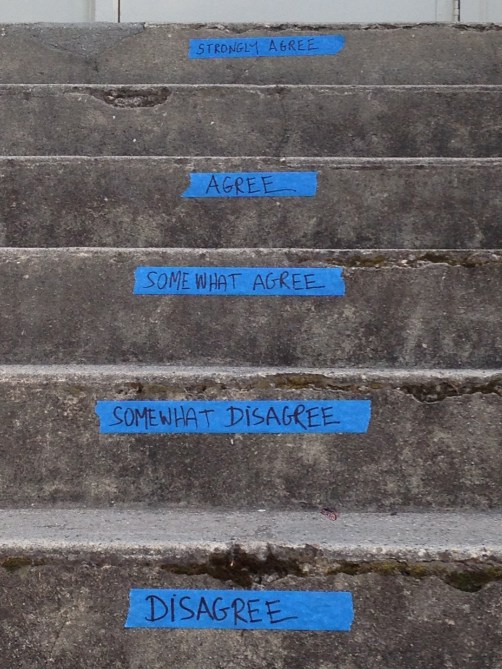 STRONGLY AGREE
AGREE
SOMEWHAT AGREE
SOMEWHAT DISAGREE
DISAGREE